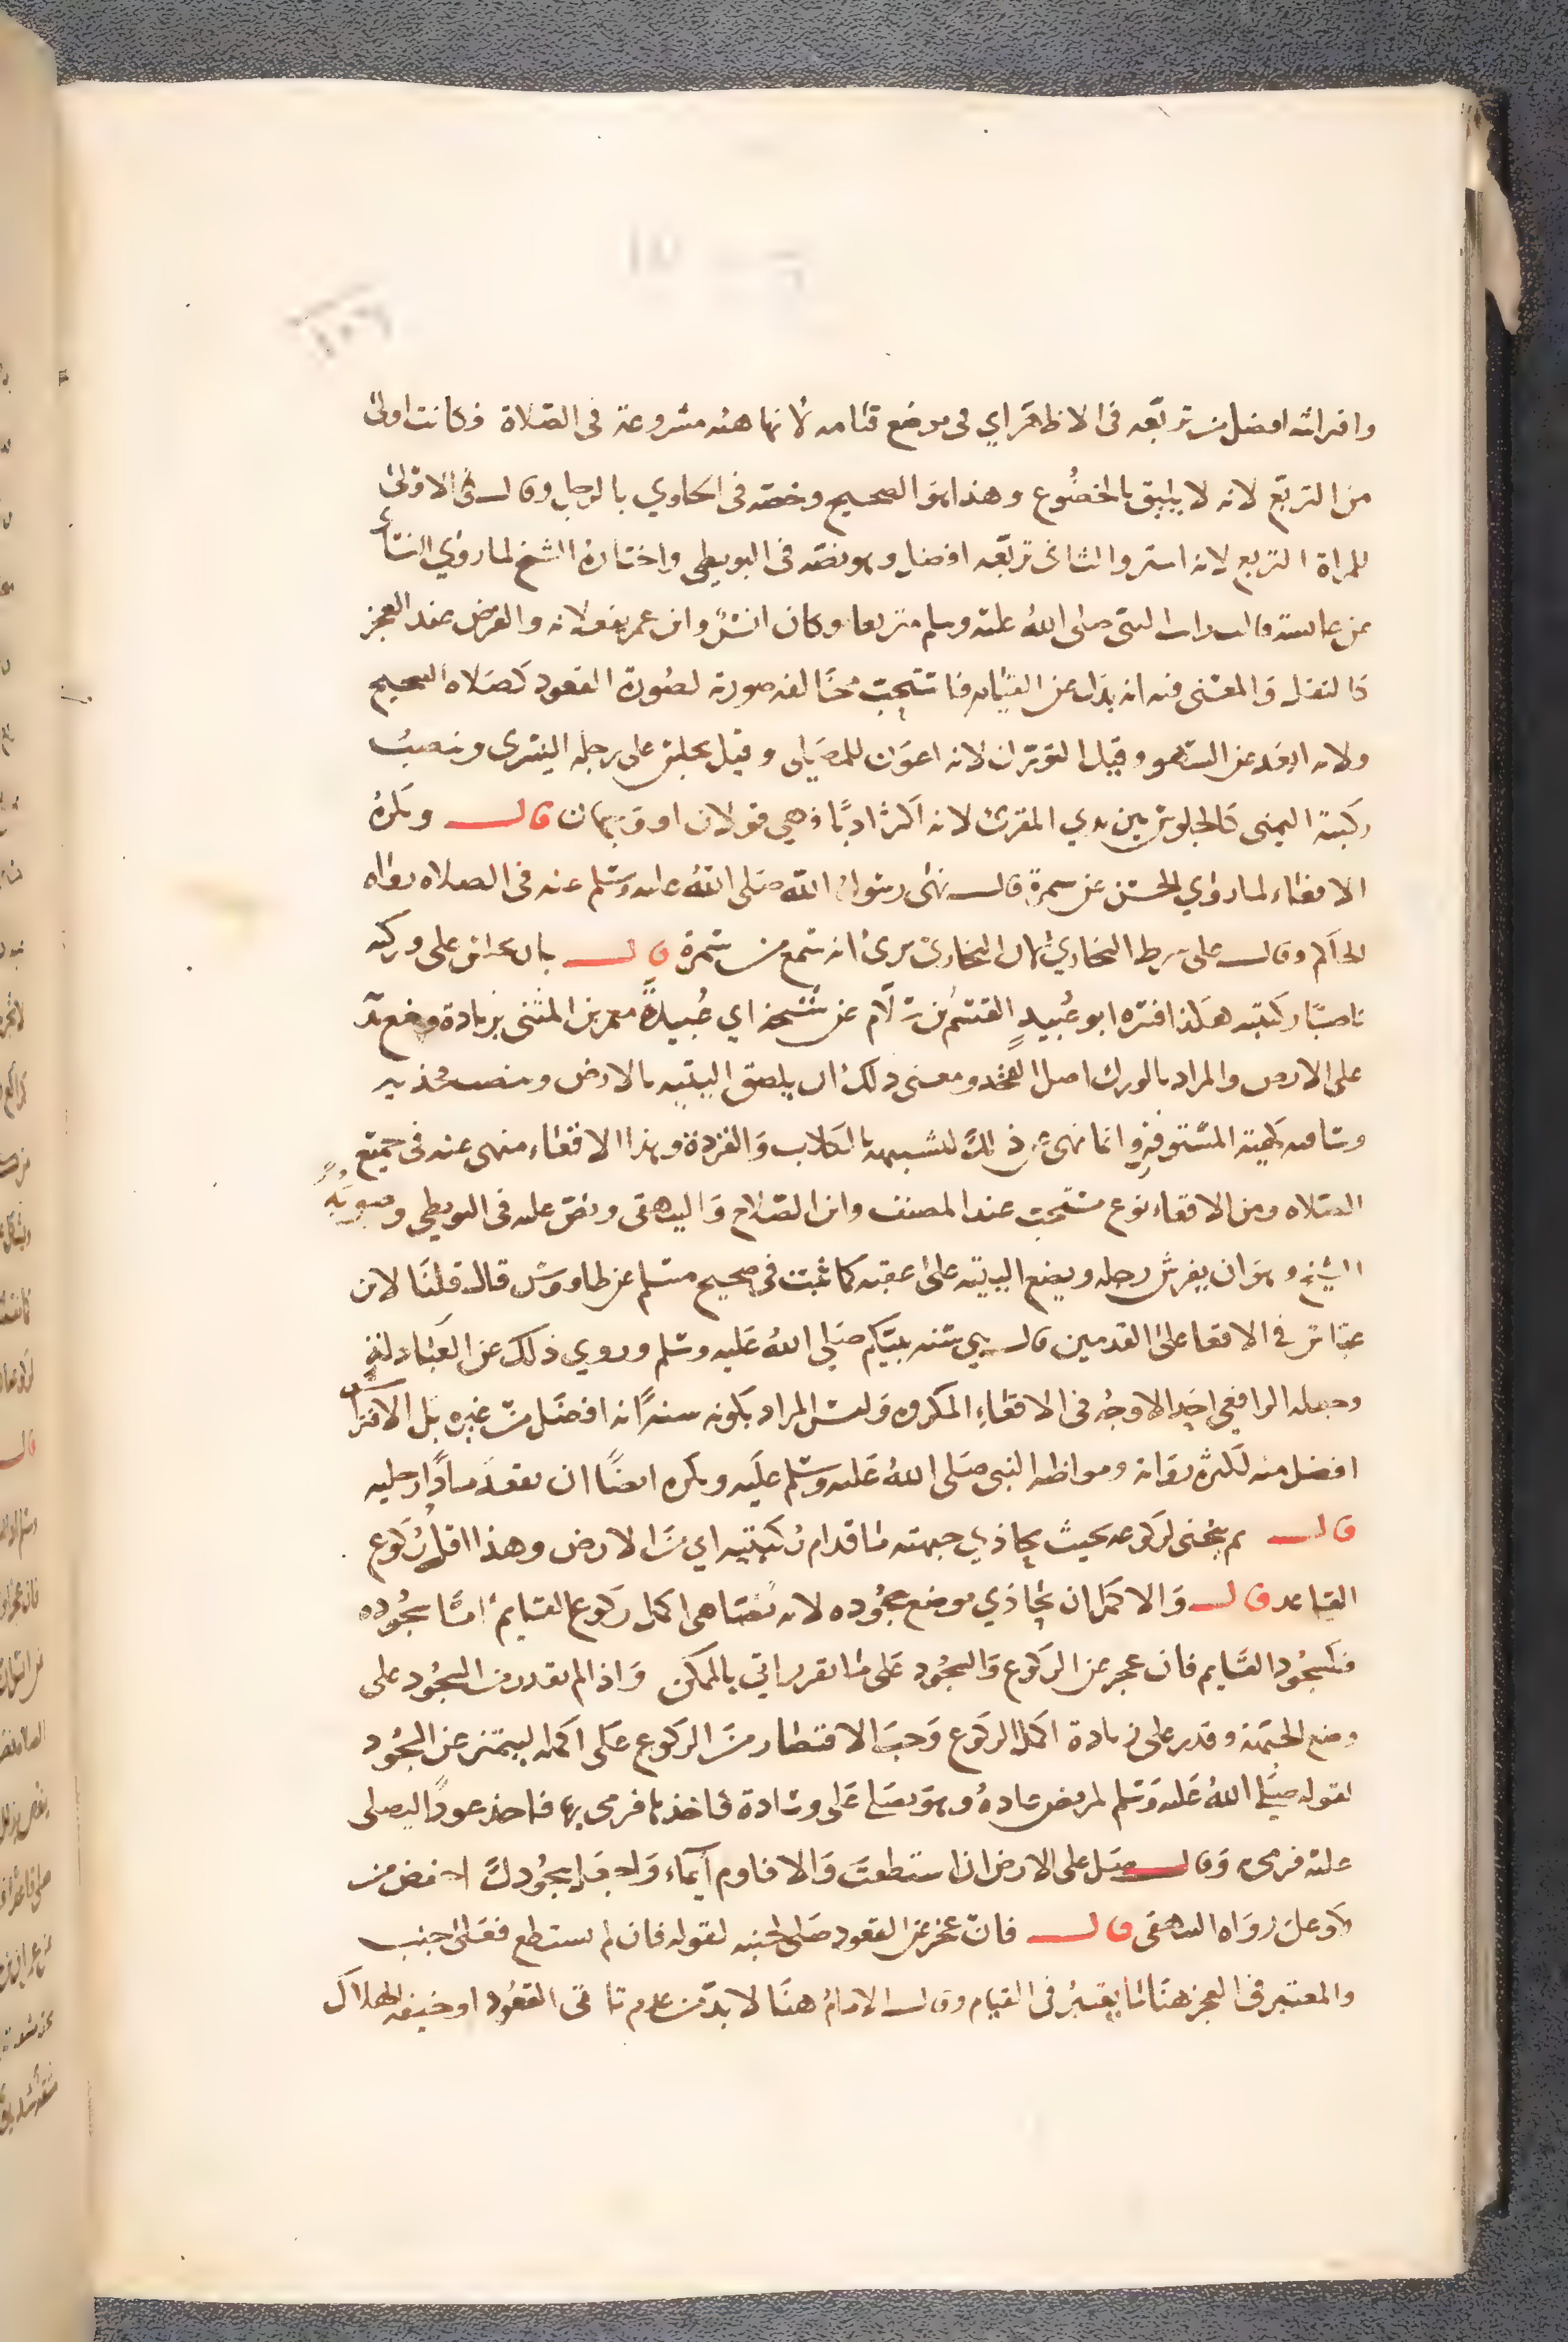 وافتراشه افضل من تربعه في الاظهر اي في موضع قيامه لانها هيئة مشروعة في الصلاة فكانت اولى
من التربع لانه لا يليق بالخضوع وهذا هو الصحيح وخصه في الحاوي بالرجل وقال في الاولى
للمراة التربع لانه استر والثاني تربعه افضل وهو نصه في البويطي واختاره الشيخ لما روي النسائي
عن عايشة قالت رايت النبي صلى الله عليه وسلم متربعا وكان انس وابن عمر يفعلانه والفرض عند العجز
كالنفل والمعنى فيه انه بدل عن القيام فاستحب مخالفة صورته لصورة القعود كصلاة الصحيح
ولانه ابعد عن السهو وقيل التورك لانه اعون للمصلي وقيل يجلس على رجله اليسرى وينصب
ركبته اليمنى كالجلوس بين يدي المقرئ لانه اكثر ادبا وهي قولان او وجهان قال ويكره
الاقعاء لما روي الحسن عن سمرة قال نهى رسول الله صلى الله عليه وسلم عنه في الصلاه رواه
الحاكم وقال على شرط البخاري فان البخاري يرى انه سمع من سمرة قال بان يجلس على وركيه
ناصبا ركبتيه هكذا فسره ابو عبيد القسم بن سلام عن شيخه ابي عبيدة معمر بن المثنى بزيادة وضع يديه
على الارض والمراد بالورك اصل الفخذ ومعنى ذلك ان يلصق اليتيه بالارض وينصب فخذيه
وساقيه كهيئة المستوفز وانما نهى عن ذلك للتشبيه بالكلاب والقردة وهذا الاقعاء منهي عنه في جميع
الصلاه ومن الاقعاء نوع مستحب عند المصنف وابن الصلاح والبيهقي ونص عليه في البويطي وصوبه
الشيخ وهو ان يفرش رجليه ويضع اليتيه على عقبيه كما ثبت في صحيح مسلم عن طاووس قال قلنا لابن
عباس في الاقعا على القدمين قال هي سنة نبيكم صلى الله عليه وسلم وروي ذلك عن العبادلة
وجعله الرافعي احد الاوجه في الاقعاء المكروه وليس المراد بكونه سنة انه افضل من غيره بل الافتراش
افضل منه لكثرة رواته ومواظبة النبي صلى الله عليه وسلم عليه ويكره ايضا ان يقعد مادا رجليه
قال ثم ينحني لركوعه بحيث يحاذي جبهته ما قدام ركبتيه اي من الارض وهذا اقل ركوع
القاعد قال والاكمل ان يحاذي موضع سجوده لانه يضاهي اكمل ركوع القايم اما سجوده
فكسجود القايم فان عجز عن الركوع والسجود على ما تقرر اتي بالممكن واذا لم يقدر من السجود على
وضع الجبهة وقدر على زيادة اكمل الركوع وجب الاقتصار من الركوع على اكمله ليتميز عن السجود
لقوله صلى الله عليه وسلم لمريض عاده وهو يصلي على وسادة فاخذها فرمى بها فاخذ عودا ليصلي
عليه فرمى به وقال صل على الارض ان استطعت والا فاوم ايماء واجعل سجودك اخفض من
ركوعك رواه البيهقي قال فان عجز عن القعود صلى لجنبه لقوله فان لم يستطع فعلى جنب
والمعتبر في العجز هنا ما يعتبر في القيام وقال الامام هنا لا بد من عدم تاتي القعود او خيفة الهلاك